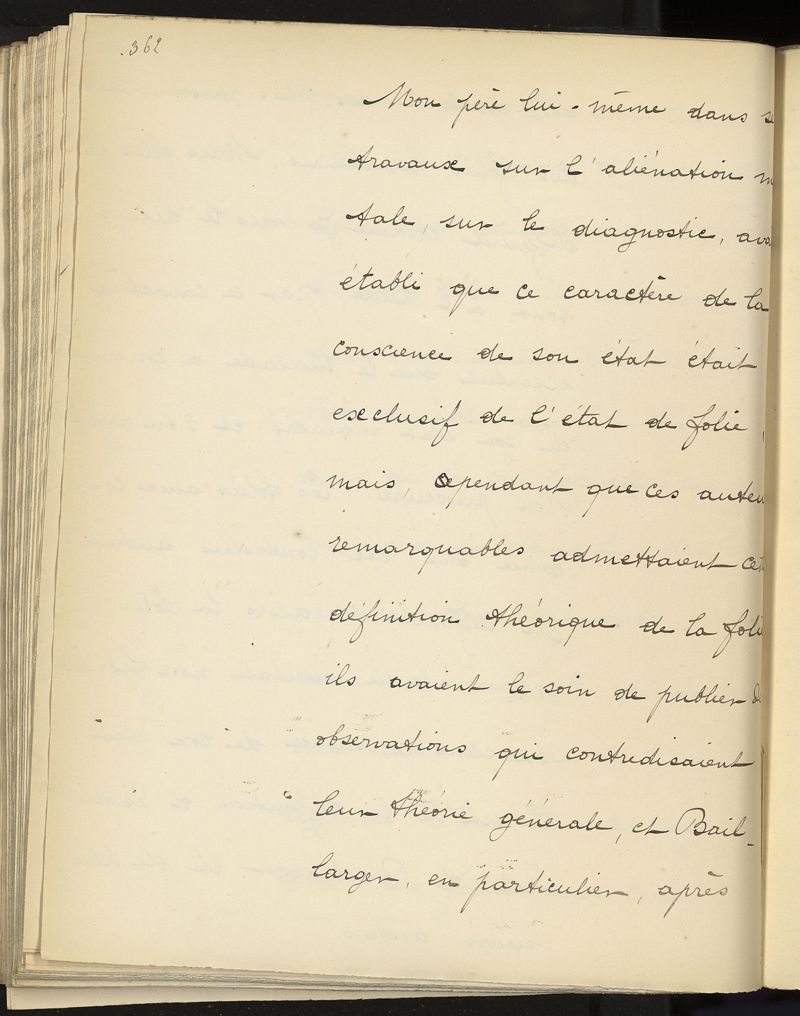 362
Mon père lui-même dans se
travaux sur l'aliénation m
tale, sur le diagnostic, ava
établi que ce caractère de la
conscience de son état était
exclusif de l'état de folie,
mais, cependant que ces auteu
remarquables admettaient cet
définition théorique de la foli
ils avaient le soin de publier d
observations qui contredisaient
leur théorie générale, et Bail-
larger, en particulier, après